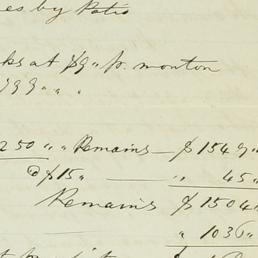 es by Patio
ks at $9 " pr. monton
799 " "
250 " " Remains — $1549 "
@ $15 " — " 45 "
Remains $1504 "
" 1030 "